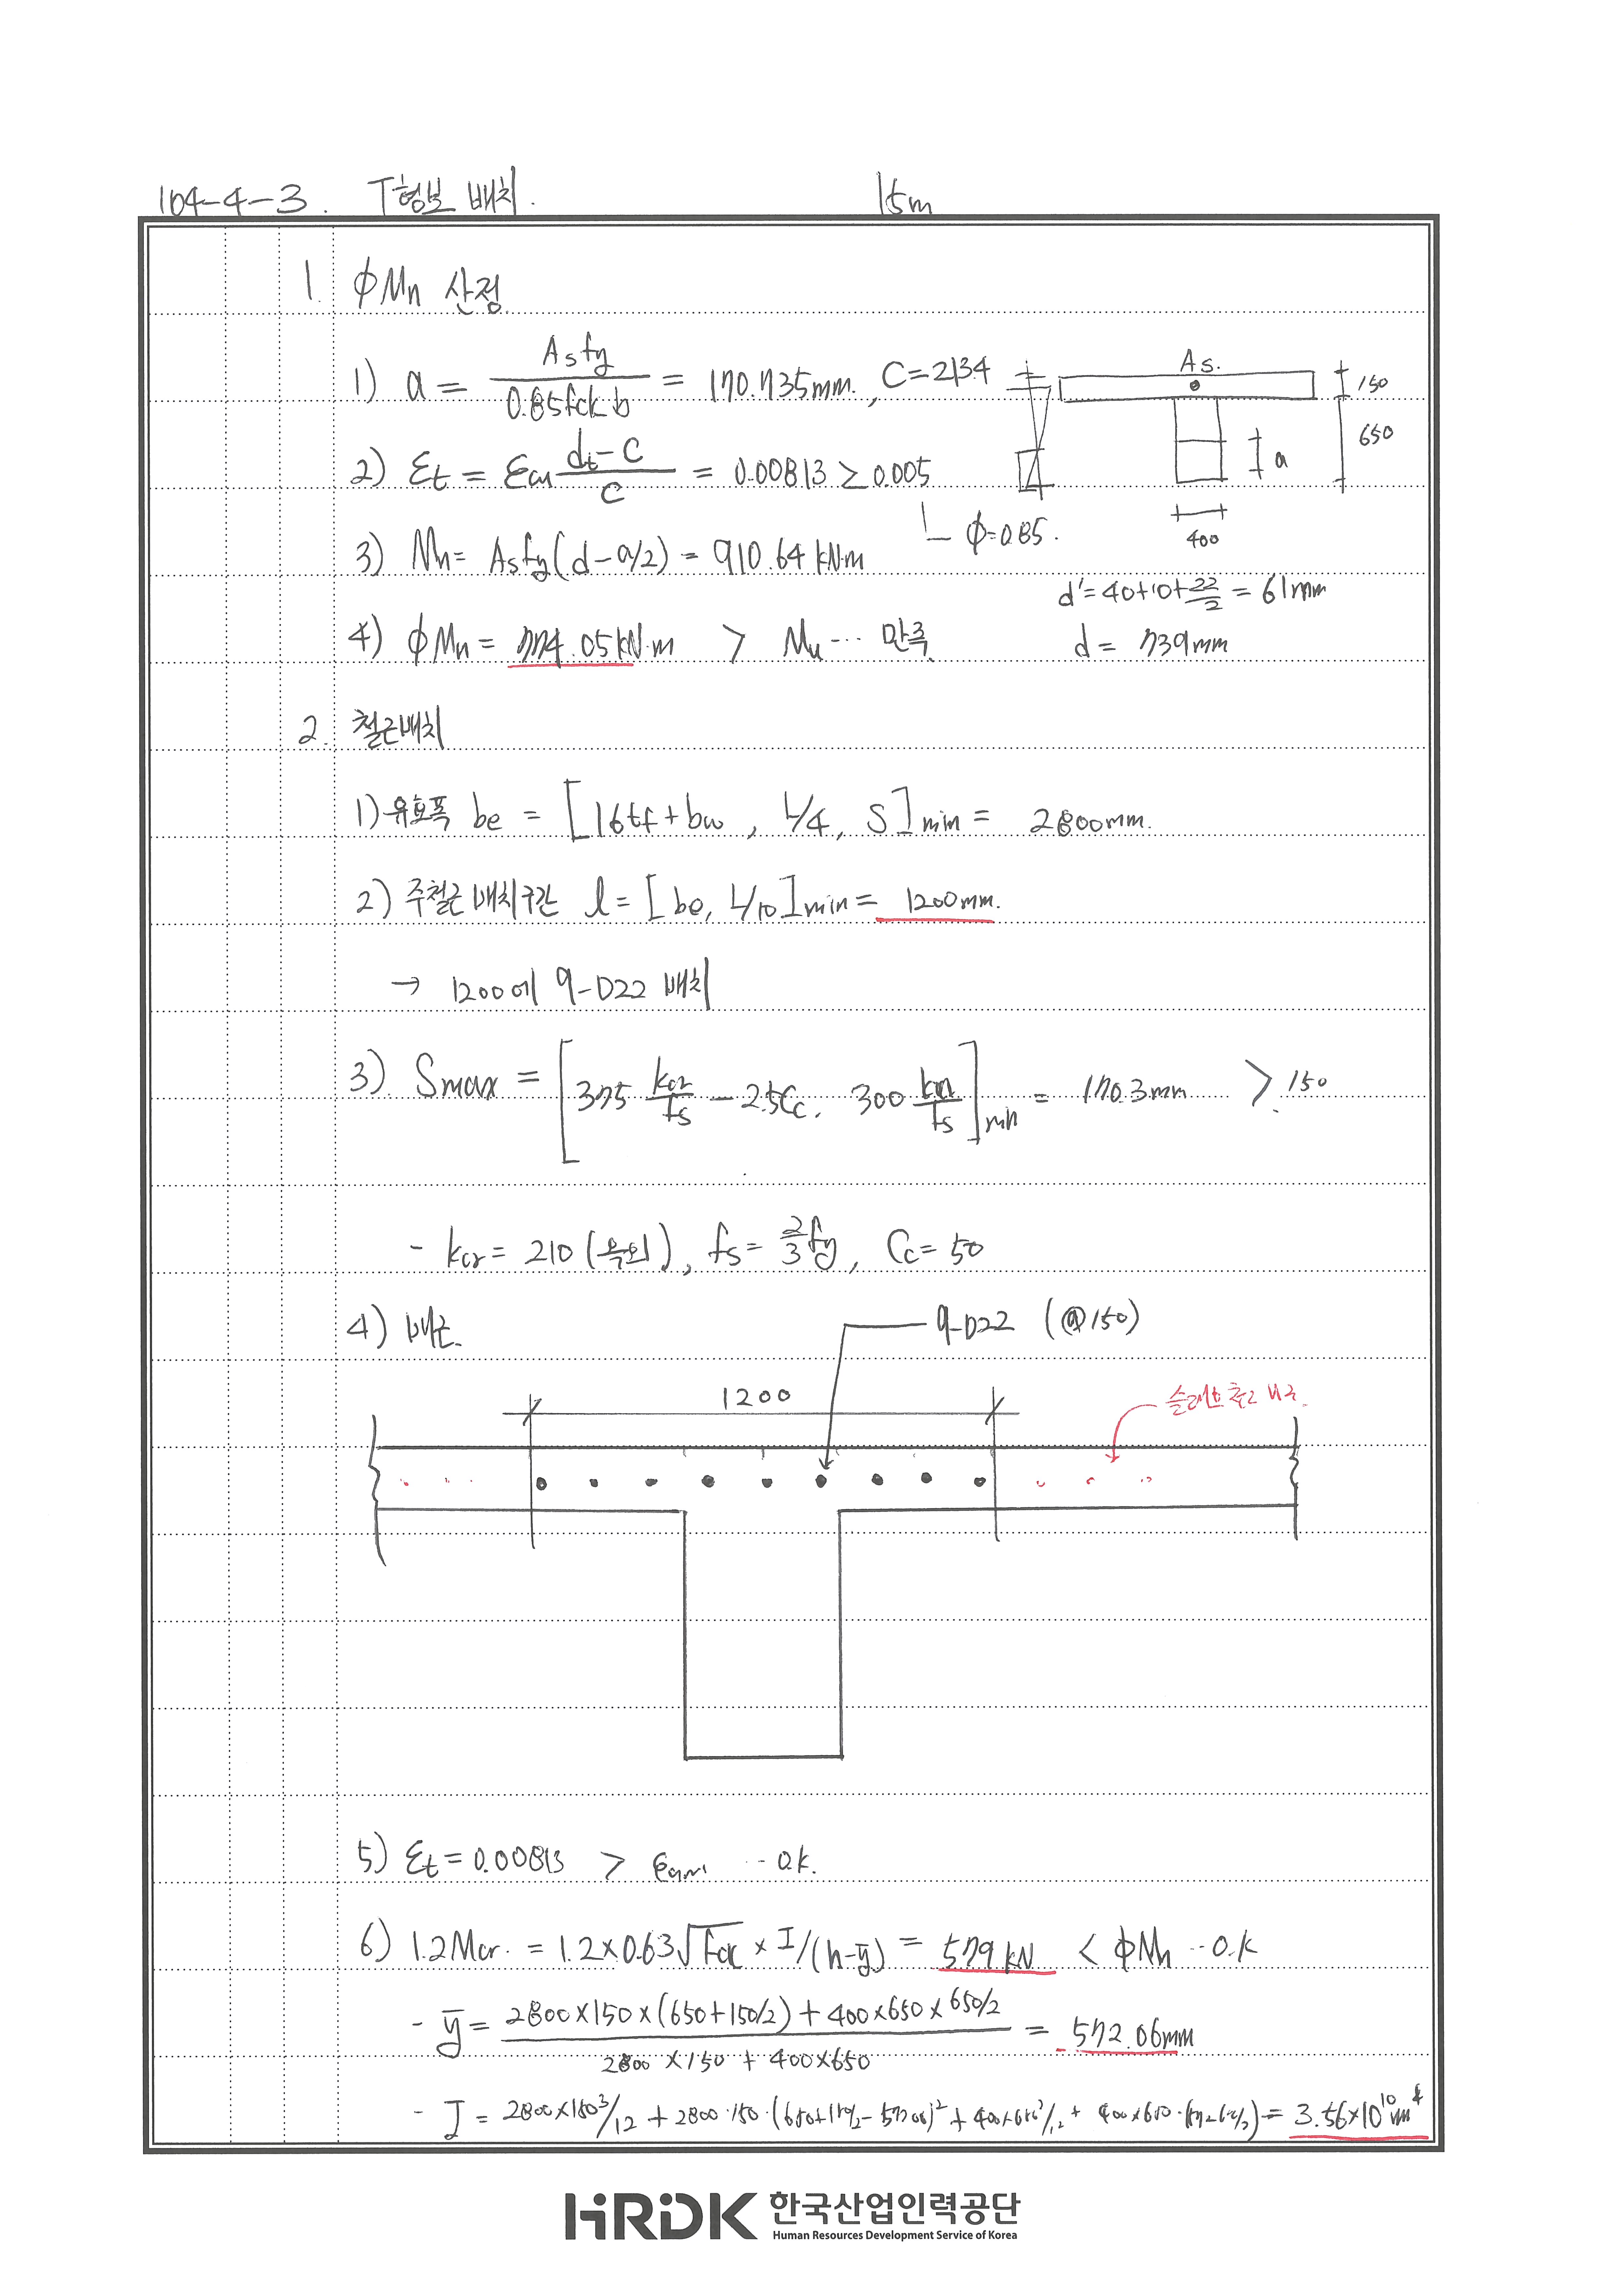 104-4-3. T형보 배치. 15m
1. ϕMn 산정.
1) a = Asfy / 0.85fck b = 170.735mm, C=213.4
As.
150
650
a
400
2) εt = εcu (dt-C)/C = 0.00813 ≥ 0.005
└ ϕ=0.85.
3) Mn= Asfy(d-a/2) = 910.64 kN·m
d'=40+10+22/2 = 61mm
4) ϕMn = 774.05kN·m > Mu ... 만족.
d = 739mm
2. 철근배치
1) 유효폭 be = [16tf+bw, L/4, S]min = 2800mm.
2) 주철근 배치구간 l = [be, L/10]min = 1200mm.
→ 1200에 9-D22 배치
3) Smax = [375 kcr/fs - 2.5Cc, 300 kcr/fs]min = 170.3mm > 150
- kcr = 210 (옥외), fs = 2/3 fy, Cc = 50
4) 배근.
9-D22 (@150)
1200
5) εt = 0.00813 > ... o.k.
6) 1.2Mcr. = 1.2×0.63√fck × I/(h-ȳ) = 579 kN < ϕMn ... o.k
- ȳ = 2800×150×(650+150/2) + 400×650×650/2 / 2800×150 + 400×650 = 572.06mm
- I = 2800×150³/12 + 2800·150·(650+150/2-572.06)² + 400×650³/12 + 400×650· = 3.56×10¹⁰mm⁴
HRDK 한국산업인력공단
Human Resources Development Service of Korea